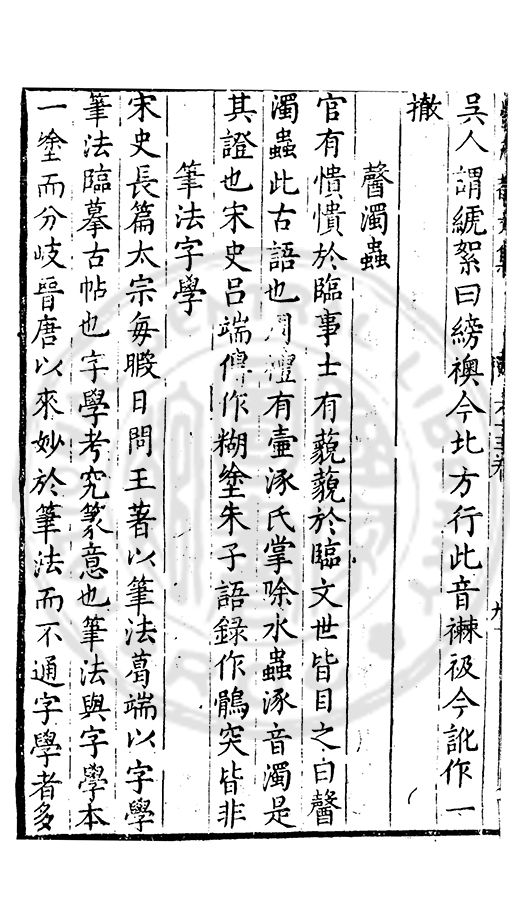 吳人謂䋲絮曰縍襖今北方行此音襋衱今訛作一
撤
瞖濁蟲
官有憒憒於臨事士有藐藐於臨文世皆目之曰瞖
濁蟲此古語也周禮有壷涿氏掌除水蟲涿音濁是
其證也宋史呂端傳作糊塗朱子語錄作鶻突皆非
筆法字學
宋史長篇太宗每暇日問王著以筆法葛端以字學
筆法臨摹古帖也字學考究篆意也筆法與字學本
一塗而分岐晉唐以來妙於筆法而不通字學者多